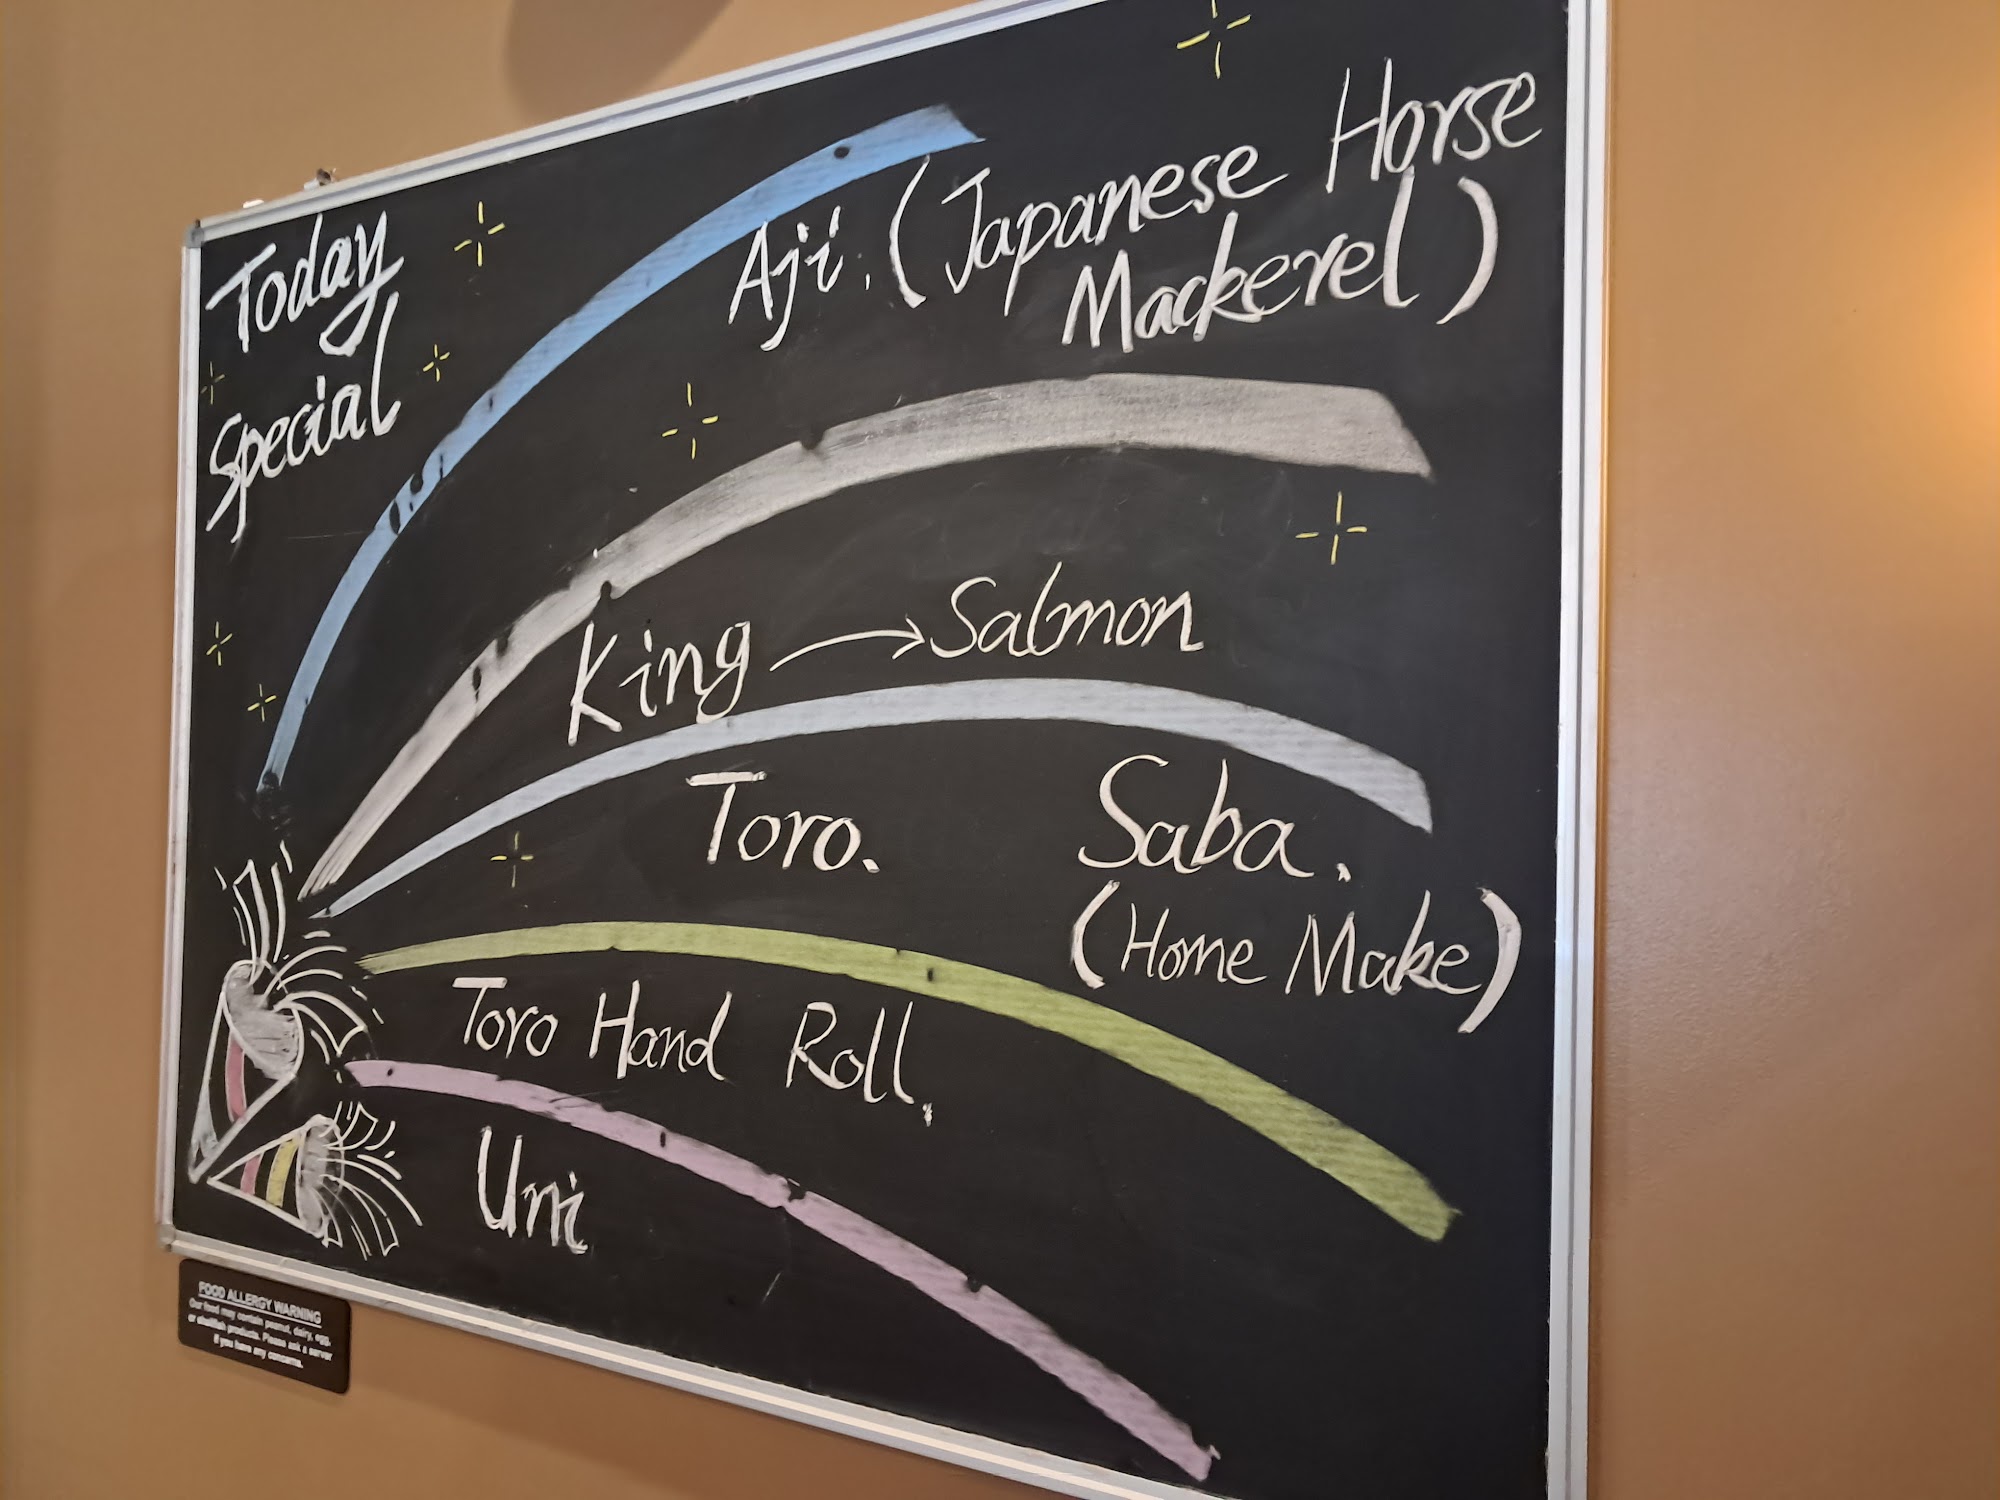 Today
Special
Aji. (Japanese Horse
Mackerel)
King → Salmon
Toro.
Saba.
(Home Make)
Toro Hand Roll.
Uni
FOOD ALLERGY WARNING
Our food may contain peanut, dairy, egg,
or shellfish products. Please ask a server
if you have any concerns.